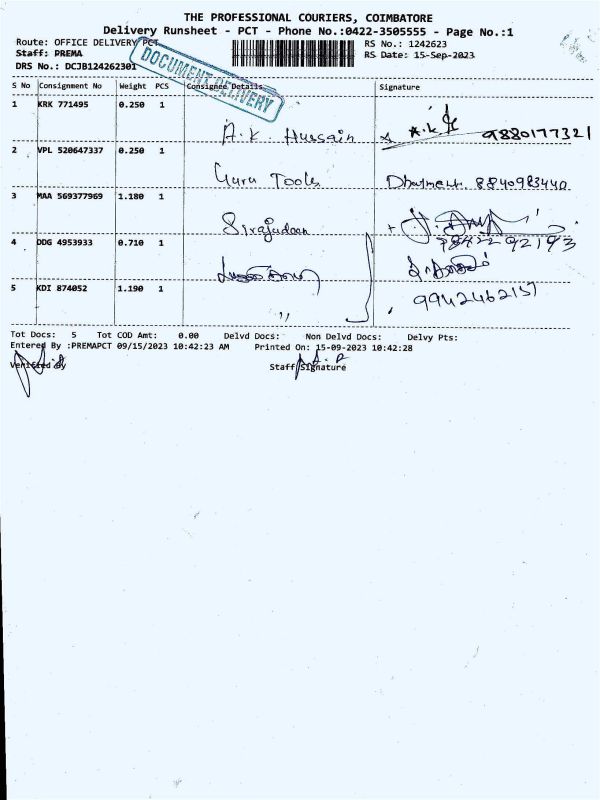 THE PROFESSIONAL COURIERS, COIMBATORE
Delivery Runsheet - PCT - Phone No.:0422-3505555 - Page No.:1
Route: OFFICE DELIVERY PCT
RS No.: 1242623
Staff: PREMA
RS Date: 15-Sep-2023
DRS No.: DCJB124262301
DOCUMENT DELIVERY
S No Consignment No Weight PCS Consignee Details Signature
1 KRK 771495 0.250 1
A.K. Hussain A.K 9880177321
2 VPL 520647337 0.250 1
Guru Tools 8840983440
3 MAA 569377969 1.180 1
Sirajudeen
7842292193
4 DDG 4953933 0.710 1
5 KDI 874052 1.190 1
9942462157
"
Tot Docs: 5 Tot COD Amt: 0.00 Delvd Docs: Non Delvd Docs: Delvy Pts:
Entered By :PREMAPCT 09/15/2023 10:42:23 AM Printed On: 15-09-2023 10:42:28
Verified By Staff Signature